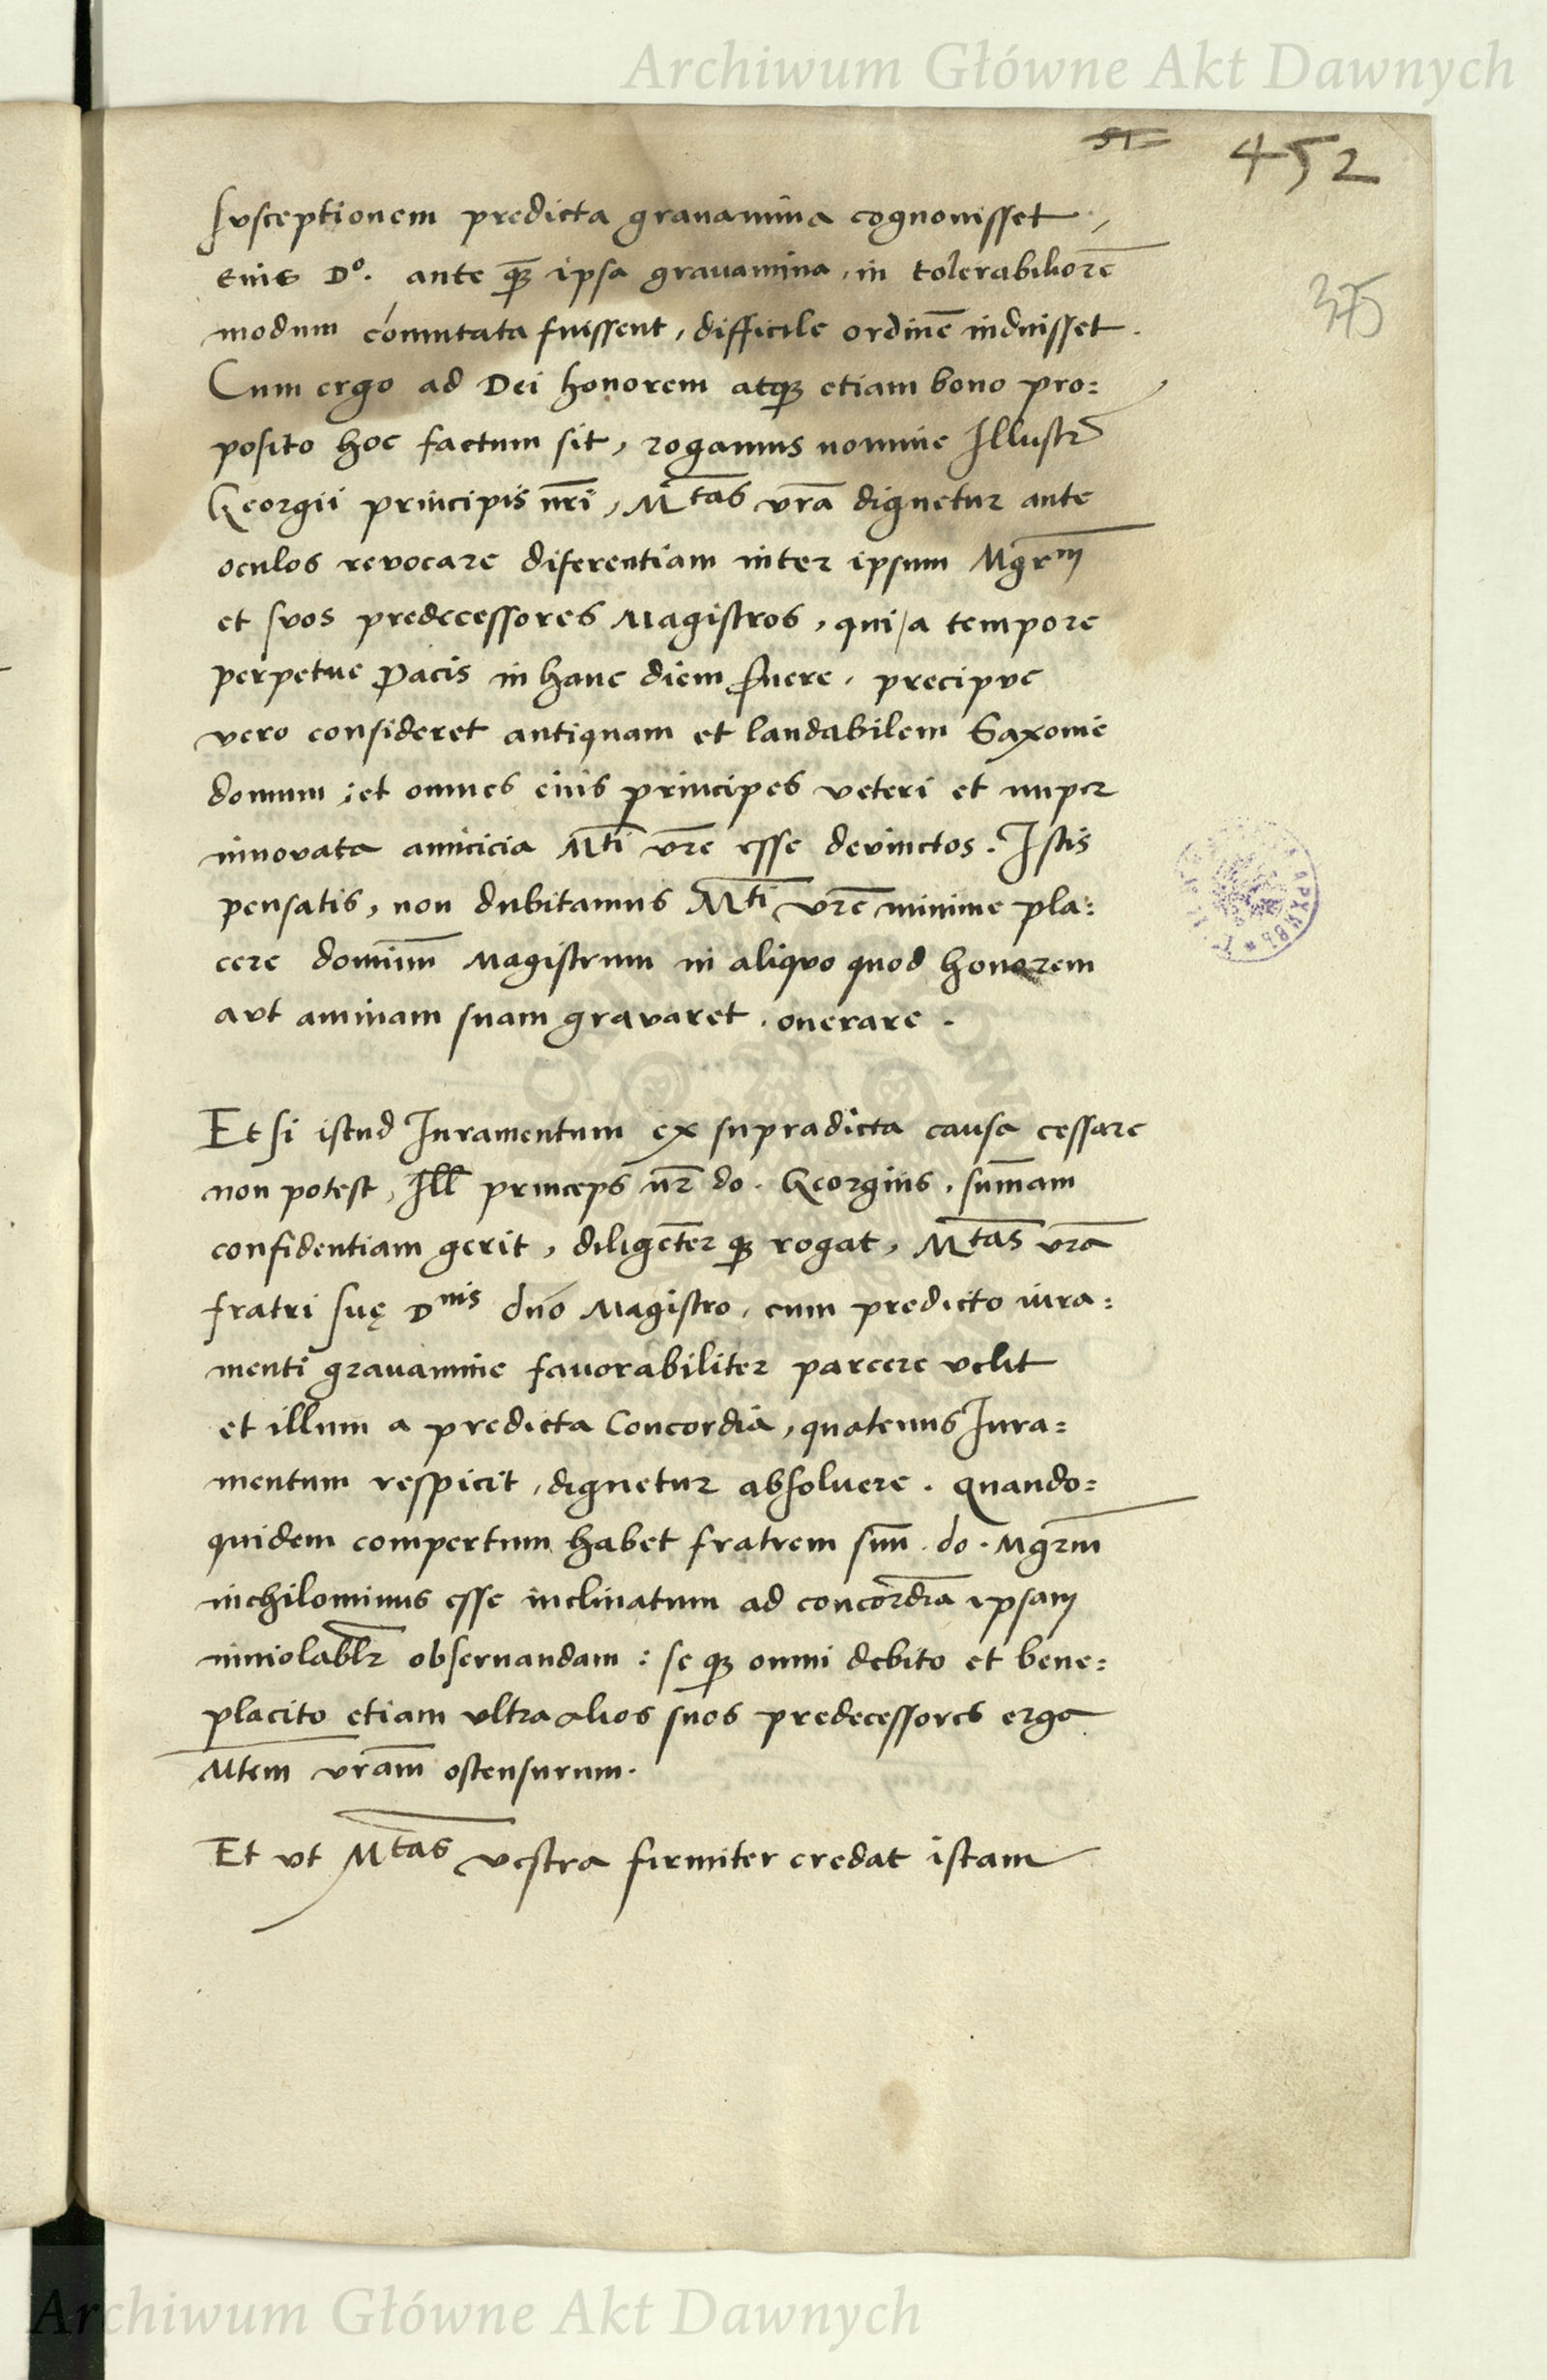 Archiwum Główne Akt Dawnych
51 452
susceptionem predicta grauamina cognouisset,
Eius Do. ante q̄ȝ ipsa grauamina, in tolerabiliorē
modum cōmutata fuissent, difficile ordinē induisset.
Cum ergo ad Dei honorem atqȝ etiam bono pro:
posito hoc factum sit, rogamus nomine Illustr
375
Georgii principis nr̄i, Mtas vr̄a dignetur ante
oculos revocare diferentiam inter ipsum Mgrm
et suos predecessores Magistros, qui a tempore
perpetue Pacis in hanc diem fuere, precipue
vero consideret antiquam et laudabilem Saxonie
domum, et omnes eius principes veteri et nuper
innovata amicicia Mti vr̄e esse devinctos. Istis
pensatis, non dubitamus Mti vr̄e minime pla:
cere dominū Magistrum in aliquo quod honorem
aut animam suam gravaret, onerare.
Et si istud Iuramentum ex supradicta causa cessare
non potest, Ill princeps nr̄ do. Georgius, sum̄am
confidentiam gerit, diligēter qȝ rogat, Mtas vr̄a
fratri suę Dnis dn̄o Magistro, cum predicto iura:
menti grauamine favorabiliter parcere velit
et illum a predicta Concordia, quatenus Iura:
mentum respicit, dignetur absoluere. Quando:
quidem compertum habet fratrem suū. do. Mgrm̄
nichilominus esse inclinatum ad concordiā ipsam
inuiolabl̄r obseruandam: se qȝ omni debito et bene:
placito etiam ultra alios suos predecessores erga
Mtem vrām ostensurum.
Et ut Mtas vestra firmiter credat istam
Archiwum Główne Akt Dawnych